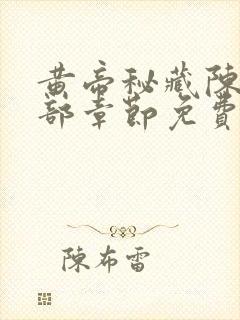 黄帝秘藏陳
部章節免費
陳布雷